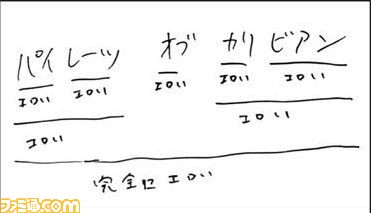 パイレーツ オブ カリビアン
エロい エロい エロい エロい エロい
エロい エロい
完全にエロい
ファミ通.com